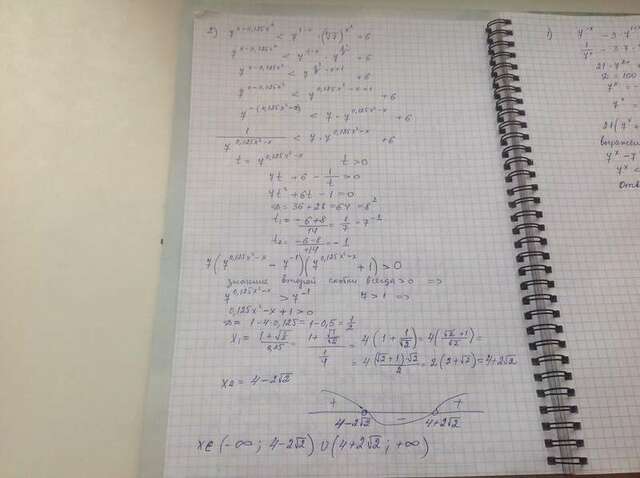 2) 7^(x-0,125x²) < 7^(1-x) · (⁸√7)^(x²) + 6
7^(x-0,125x²) < 7^(1-x) · 7^(x²/8) + 6
7^(x-0,125x²) < 7^(x²/8 - x+1) + 6
7^(x-0,125x²) < 7^(0,125x²-x+1) + 6
7^(-(0,125x²-x)) < 7 · 7^(0,125x²-x) + 6
1/7^(0,125x²-x) < 7 · 7^(0,125x²-x) + 6
t = 7^(0,125x²-x) t > 0
7t + 6 - 1/t > 0
7t² + 6t - 1 = 0
D = 36 + 28 = 64 = 8²
t₁ = (-6+8)/14 = 1/7 = 7^(-1)
t₂ = (-6-8)/14 = -1
7(7^(0,125x²-x) - 7^(-1))(7^(0,125x²-x) + 1) > 0
значение второй скобки всегда > 0 =>
7^(0,125x²-x) > 7^(-1) 7 > 1 =>
0,125x² - x + 1 > 0
D = 1 - 4·0,125 = 1 - 0,5 = 1/2
= 4(1 + 1/√2) = 4((√2+1)/√2) =
= 4(√2+1)·√2/2 = 2(2+√2) = 4+2√2
x₂ = 4-2√2
+ - +
4-2√2 4+2√2
x ∈ (-∞; 4-2√2) ∪ (4+2√2; +∞)
1) 7^(-x) - 3 · 7
21 · 7
D = 100
7^x = -
7^x
21(7^x +
выражен
7^x - 7
7^x <
Отв